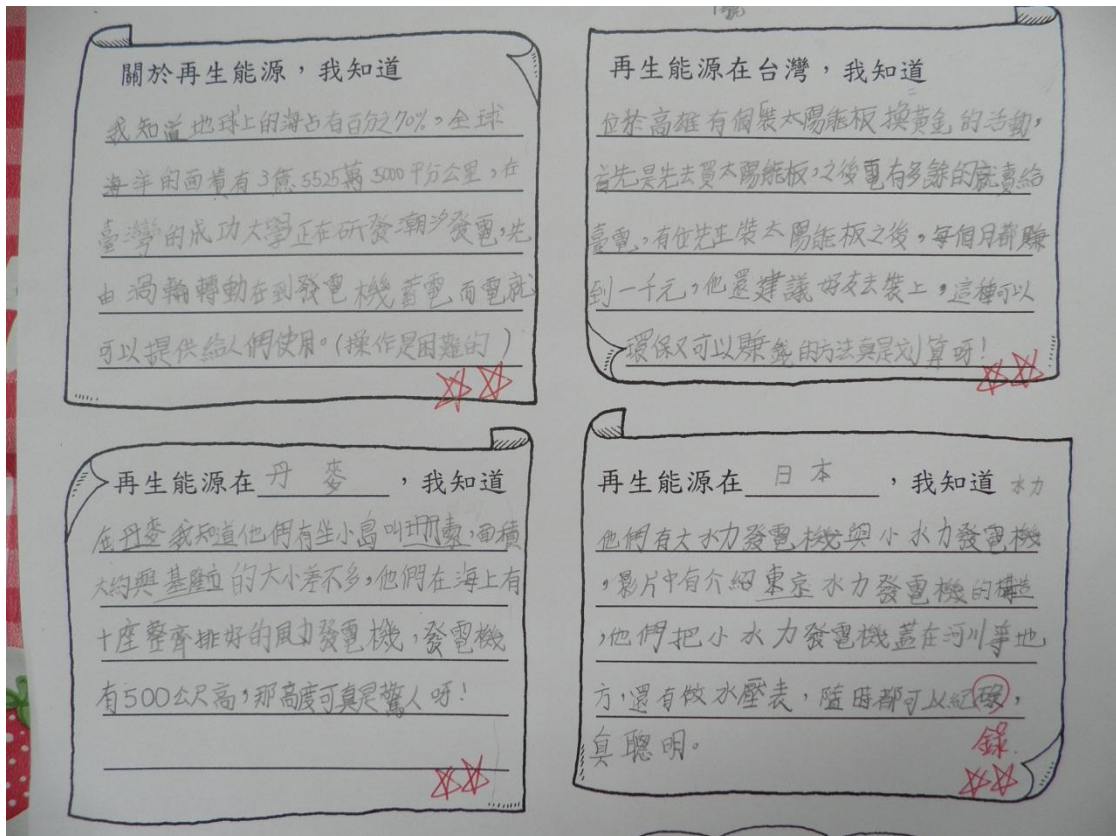 1號
關於再生能源，我知道
我知道地球上的海占有百分之70%，全球
海洋的面積有3億5525萬5000平方公里，在
臺灣的成功大學正在研發潮汐發電，先
由渦輪轉動在到發電機蓄電而電就
可以提供給人們使用。(操作是困難的)
再生能源在台灣，我知道
位於高雄有個裝太陽能板換黃金的活動，
首先是先去買太陽能板，之後電有多餘的就賣給
臺電，有位先生裝太陽能板之後，每個月都賺
到一千元，他還建議好友去裝上，這種可以
環保又可以賺錢的方法真是划算呀！
再生能源在丹麥，我知道
在丹麥我知道他們有坐小島叫珊索，面積
大約與基隆的大小差不多，他們在海上有
十座整齊排好的風力發電機，發電機
有500公尺高，那高度可真是驚人呀！
再生能源在日本，我知道 水力
他們有大水力發電機與小水力發電機
，影片中有介紹東京水力發電機的構造
，他們把小水力發電機蓋在河川等地
方，還有做水壓表，隨時都可以紀碌，
錄
真聰明。